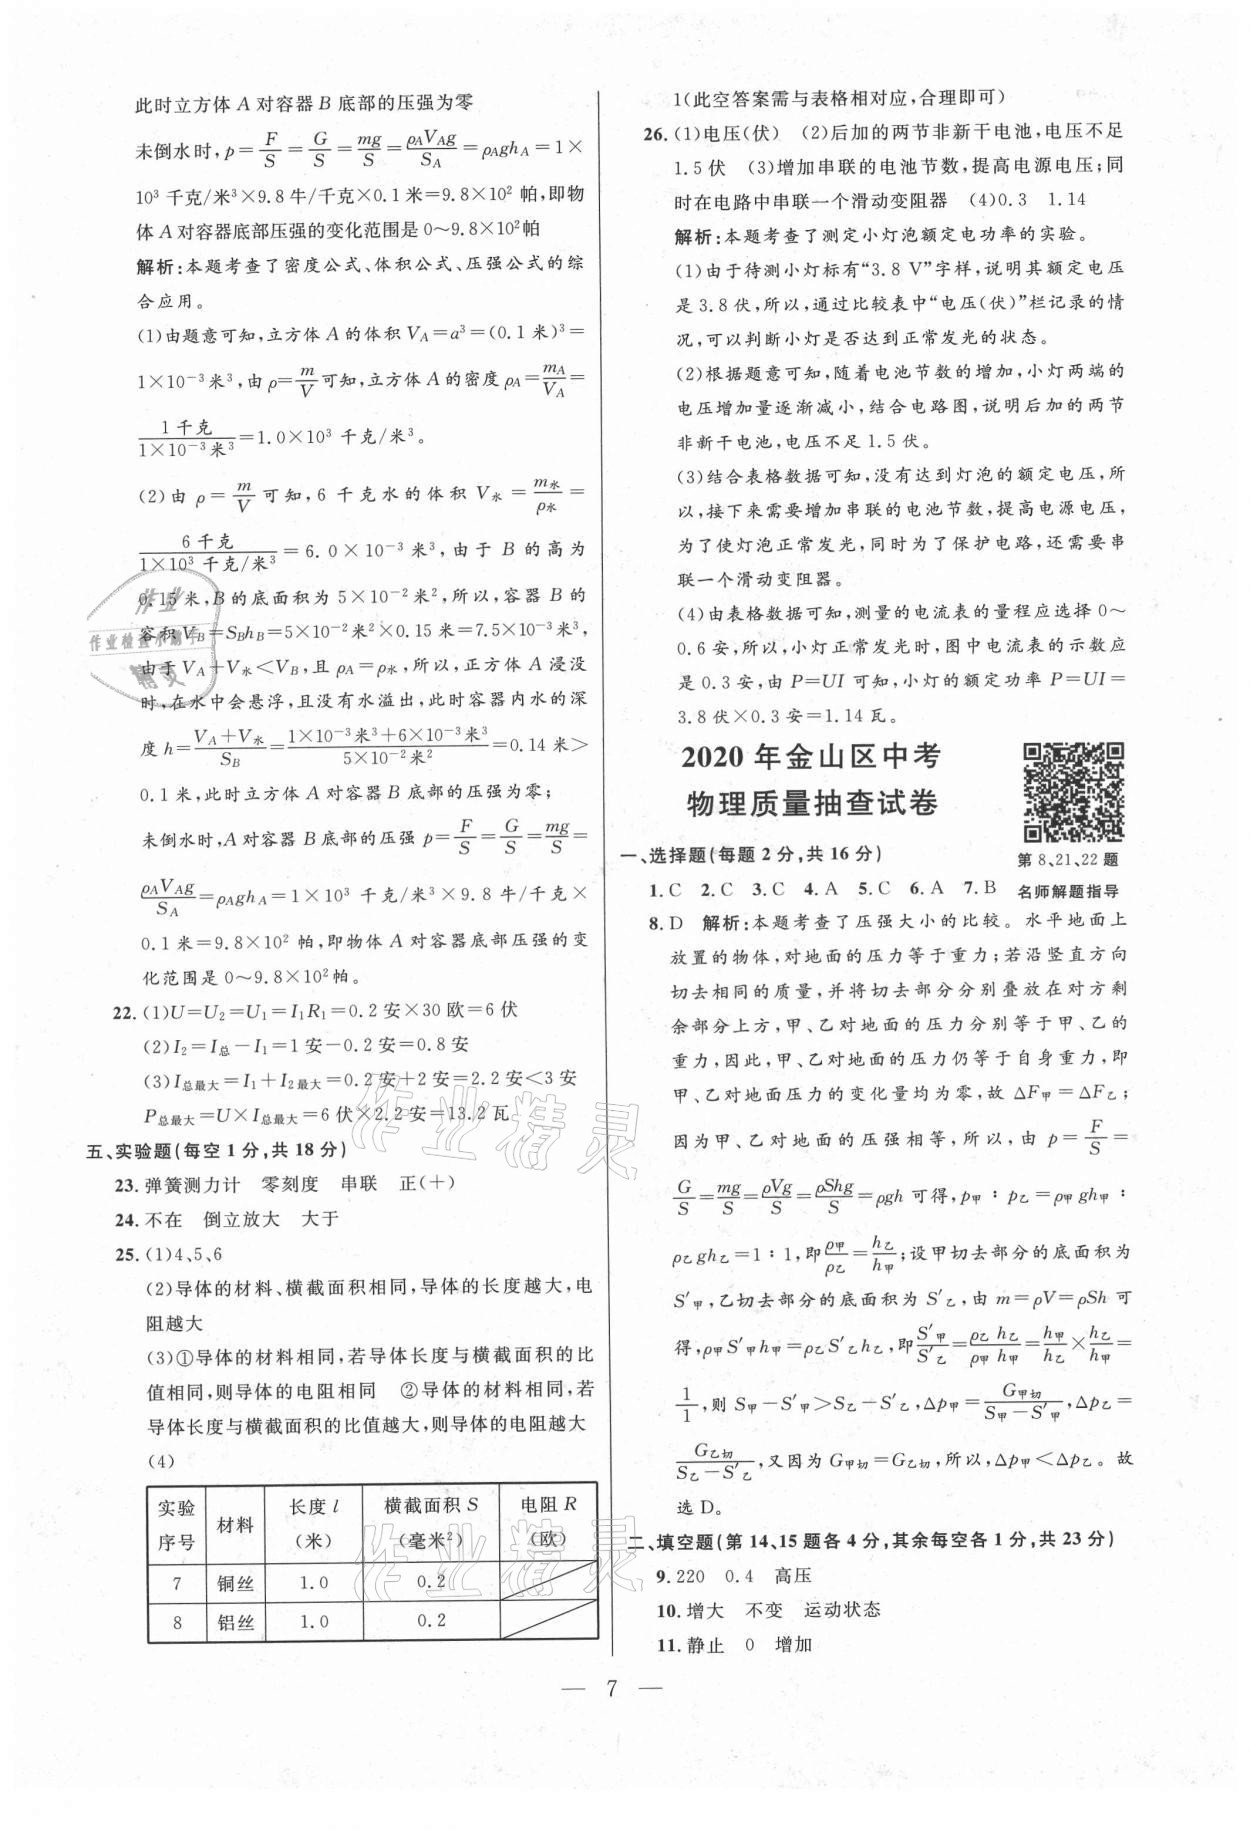 此时立方体 A 对容器 B 底部的压强为零
未倒水时，p＝F/S＝G/S＝mg/S＝ρAVAg/SA＝ρAghA＝1×
10³ 千克/米³×9.8 牛/千克×0.1 米＝9.8×10² 帕，即物
体 A 对容器底部压强的变化范围是 0～9.8×10²帕
解析：本题考查了密度公式、体积公式、压强公式的综
合应用。
(1)由题意可知，立方体 A 的体积 VA＝a³＝(0.1 米)³＝
1×10⁻³米³，由 ρ＝m/V 可知，立方体 A 的密度 ρA＝mA/VA＝
1 千克/1×10⁻³ 米³＝1.0×10³ 千克/米³。
(2)由 ρ＝m/V 可知，6 千克水的体积 V水＝m水/ρ水＝
6 千克/1×10³ 千克/米³＝6.0×10⁻³ 米³，由于 B 的高为
0.15 米，B的底面积为 5×10⁻²米²，所以，容器 B 的
容积 VB＝SBhB＝5×10⁻²米²×0.15 米＝7.5×10⁻³米³，
由于 VA＋V水＜VB，且 ρA＝ρ水，所以，正方体 A 浸没
时，在水中会悬浮，且没有水溢出，此时容器内水的深
度 h＝VA＋V水/SB＝1×10⁻³米³＋6×10⁻³米³/5×10⁻²米²＝0.14 米＞
0.1 米，此时立方体 A 对容器 B 底部的压强为零；
未倒水时，A 对容器 B 底部的压强 p＝F/S＝G/S＝mg/S＝
ρAVAg/SA＝ρAghA＝1×10³ 千克/米³×9.8 牛/千克×
0.1 米＝9.8×10² 帕，即物体 A 对容器底部压强的变
化范围是 0～9.8×10²帕。
22. (1)U＝U2＝U1＝I1R1＝0.2 安×30 欧＝6 伏
(2)I2＝I总－I1＝1 安－0.2 安＝0.8 安
(3)I总最大＝I1＋I2最大＝0.2 安＋2 安＝2.2 安＜3 安
P总最大＝U×I总最大＝6 伏×2.2 安＝13.2 瓦
五、实验题(每空 1 分，共 18 分)
23. 弹簧测力计 零刻度 串联 正(＋)
24. 不在 倒立放大 大于
25. (1)4、5、6
(2)导体的材料、横截面积相同，导体的长度越大，电
阻越大
(3)①导体的材料相同，若导体长度与横截面积的比
值相同，则导体的电阻相同 ②导体的材料相同，若
导体长度与横截面积的比值越大，则导体的电阻越大
(4)
实验序号 材料 长度 l(米) 横截面积 S(毫米²) 电阻 R(欧)
7 铜丝 1.0 0.2
8 铝丝 1.0 0.2
1(此空答案需与表格相对应，合理即可)
26. (1)电压(伏) (2)后加的两节非新干电池，电压不足
1.5 伏 (3)增加串联的电池节数，提高电源电压；同
时在电路中串联一个滑动变阻器 (4)0.3 1.14
解析：本题考查了测定小灯泡额定电功率的实验。
(1)由于待测小灯标有“3.8 V”字样，说明其额定电压
是 3.8 伏，所以，通过比较表中“电压(伏)”栏记录的情
况，可以判断小灯是否达到正常发光的状态。
(2)根据题意可知，随着电池节数的增加，小灯两端的
电压增加量逐渐减小，结合电路图，说明后加的两节
非新干电池，电压不足 1.5 伏。
(3)结合表格数据可知，没有达到灯泡的额定电压，所
以，接下来需要增加串联的电池节数，提高电源电压，
为了使灯泡正常发光，同时为了保护电路，还需要串
联一个滑动变阻器。
(4)由表格数据可知，测量的电流表的量程应选择 0～
0.6 安，所以，小灯正常发光时，图中电流表的示数应
是 0.3 安，由 P＝UI 可知，小灯的额定功率 P＝UI＝
3.8 伏×0.3 安＝1.14 瓦。
2020 年金山区中考
物理质量抽查试卷
第 8、21、22 题
名师解题指导
一、选择题(每题 2 分，共 16 分)
1. C 2. C 3. C 4. A 5. C 6. A 7. B
8. D 解析：本题考查了压强大小的比较。水平地面上
放置的物体，对地面的压力等于重力；若沿竖直方向
切去相同的质量，并将切去部分分别叠放在对方剩
余部分上方，甲、乙对地面的压力分别等于甲、乙的
重力，因此，甲、乙对地面的压力仍等于自身重力，即
甲、乙对地面压力的变化量均为零，故 ΔF甲＝ΔF乙；
因为甲、乙对地面的压强相等，所以，由 p＝F/S＝
G/S＝mg/S＝ρVg/S＝ρShg/S＝ρgh 可得，p甲∶p乙＝ρ甲gh甲∶
ρ乙gh乙＝1∶1，即ρ甲/ρ乙＝h乙/h甲；设甲切去部分的底面积为
S′甲，乙切去部分的底面积为 S′乙，由 m＝ρV＝ρSh 可
得，ρ甲S′甲h甲＝ρ乙S′乙h乙，即S′甲/S′乙＝ρ乙h乙/ρ甲h甲＝h甲/h乙×h乙/h甲＝
1/1，则 S甲－S′甲＞S乙－S′乙，Δp甲＝G甲切/S甲－S′甲，Δp乙＝
G乙切/S乙－S′乙，又因为 G甲切＝G乙切，所以，Δp甲＜Δp乙。故
选 D。
二、填空题(第 14、15 题各 4 分，其余每空各 1 分，共 23 分)
9. 220 0.4 高压
10. 增大 不变 运动状态
11. 静止 0 增加
— 7 —
作业
作业检查小助手
精灵
作业精灵
作业精灵